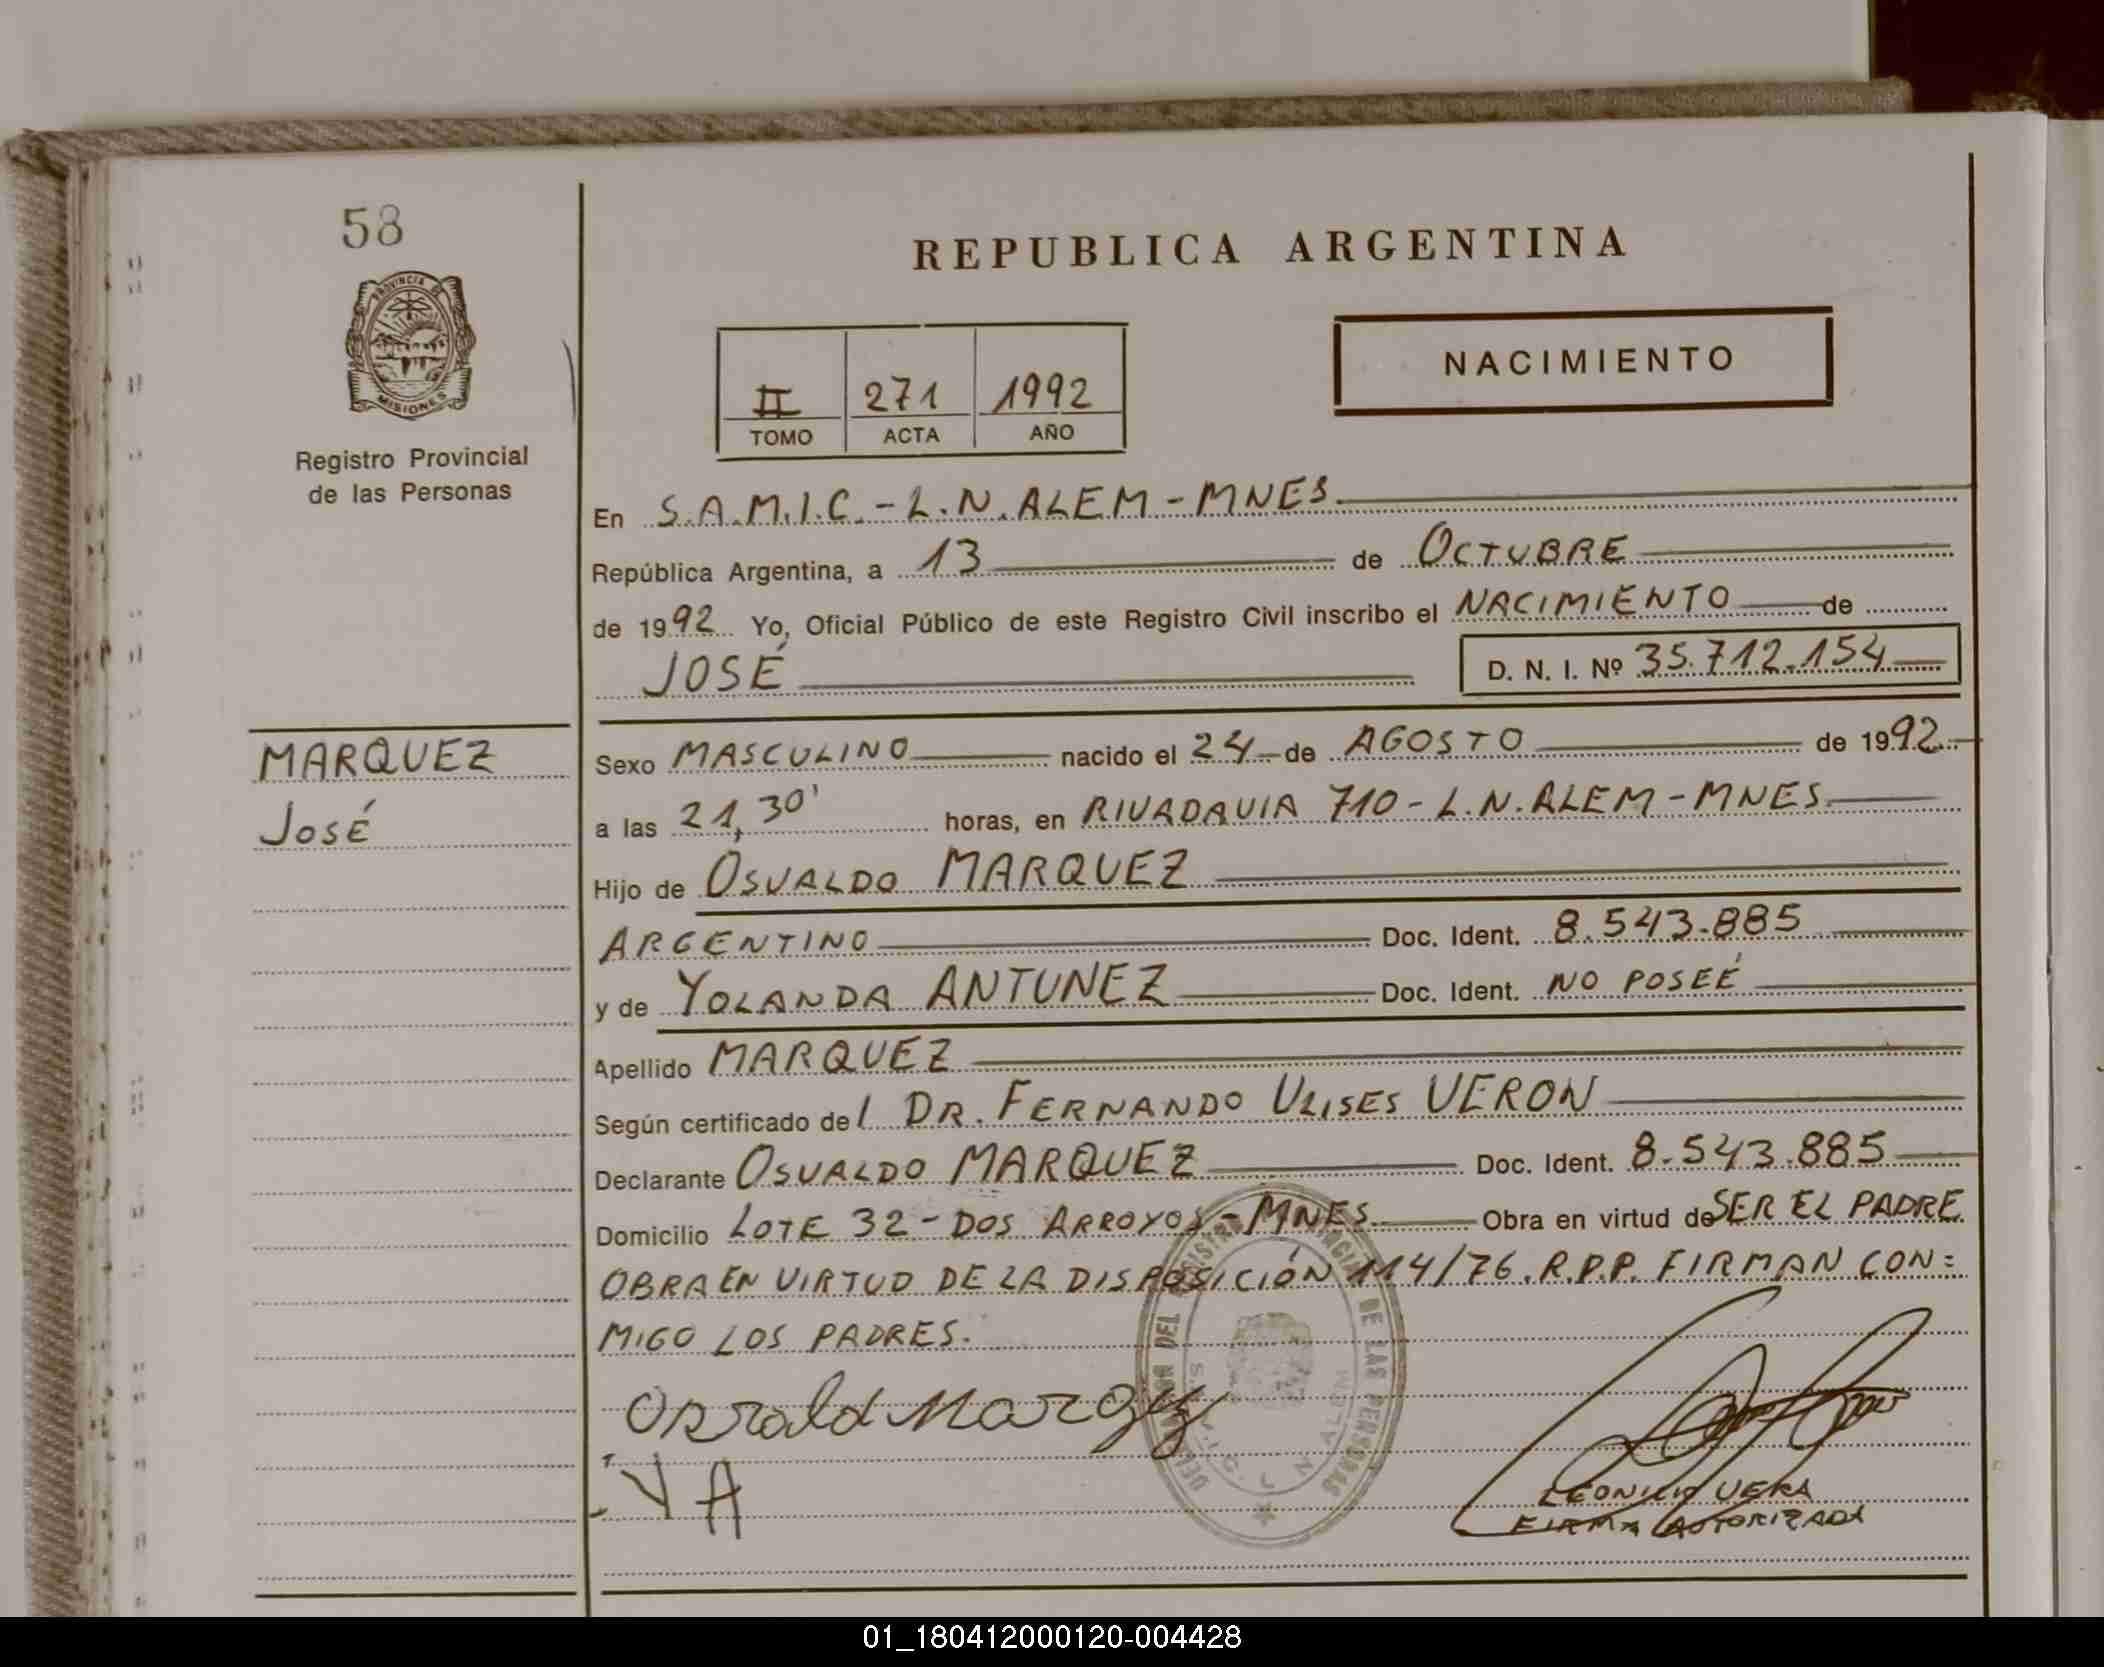 58
REPUBLICA ARGENTINA
PROVINCIA DE
MISIONES
Registro Provincial
de las Personas
II 271 1992
TOMO ACTA AÑO
NACIMIENTO
En S.A.M.I.C.-L.N.ALEM-MNES
República Argentina, a 13 de OCTUBRE
de 1992 Yo, Oficial Público de este Registro Civil inscribo el NACIMIENTO de
JOSÉ D. N. I. Nº 35.712.154
MARQUEZ
JOSÉ
Sexo MASCULINO nacido el 24 de AGOSTO de 1992
a las 21,30' horas, en RIVADAVIA 710-L.N.ALEM-MNES
Hijo de OSVALDO MARQUEZ
ARGENTINO Doc. Ident. 8.543.885
y de YOLANDA ANTUNEZ Doc. Ident. NO POSEÉ
Apellido MARQUEZ
Según certificado del DR. FERNANDO ULISES VERON
Declarante OSVALDO MARQUEZ Doc. Ident. 8.543.885
Domicilio LOTE 32-DOS ARROYOS-MNES Obra en virtud de SER EL PADRE
OBRA EN VIRTUD DE LA DISPOSICIÓN 114/76.R.P.P. FIRMAN CON=
MIGO LOS PADRES.
Y A
DE LAS PERSONAS
L N ALEM
VERA
FIRMA AUTORIZADA
01_180412000120-004428